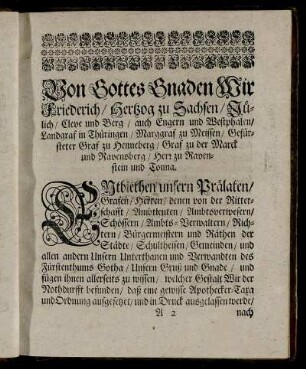 Von Gottes Gnaden Wir
Friederich / Hertzog zu Sachsen / Jü-
lich / Cleve und Berg / auch Engern und Westphalen /
Landgraf in Thüringen / Marggraf zu Meissen / Gefür-
steter Graf zu Henneberg / Graf zu der Marck
und Ravensberg / Herr zu Raven-
stein und Tonna.
ENtbiethen unsern Prälaten /
Grafen / Herren / denen von der Ritter-
schafft / Ambtleuten / Ambtsverwesern /
Schössern / Ambts-Verwaltern / Rich-
tern / Bürgermeistern und Räthen der
Städte / Schultheisen / Gemeinden / und
allen andern Unsern Unterthanen und Verwandten des
Fürstenthums Gotha / Unsern Gruß und Gnade / und
fügen ihnen allerseits zu wissen / welcher Gestalt Wir der
Nothdurfft befunden / daß eine gewisse Apothecker-Taxa
und Ordnung aufgesetzet / und in Druck ausgelassen werde /
A 2 nach